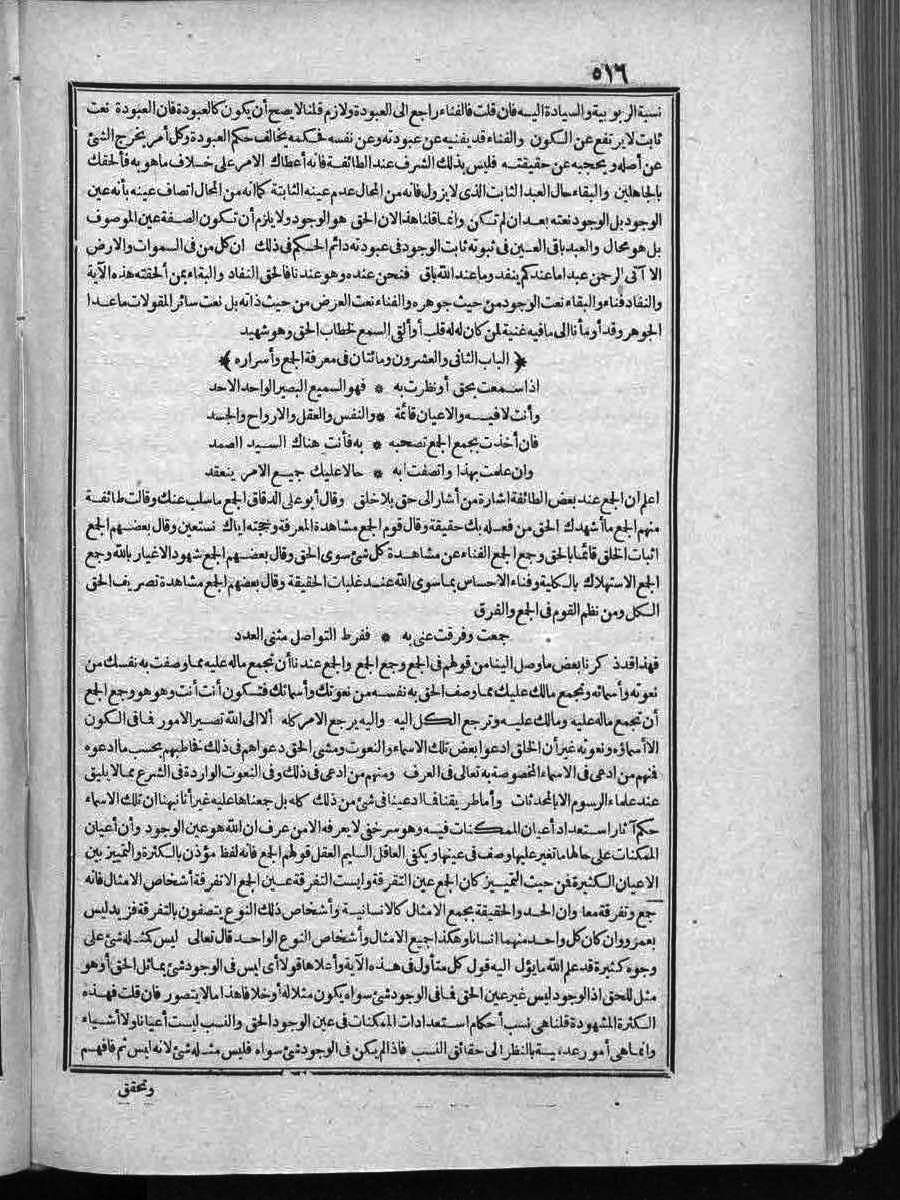 ٥١٦
نسبة الربوبية والسيادة اليه فان قلت فالفناء راجع الى العبودة ولازم قلنا لا يصح أن يكون كالعبودة فان العبودة نعت
ثابت لا يرتفع عن الكون والفناء قد يفنيه عن عبودته وعن نفسه فحكمه يخالف حكم العبودة وكل أمر يخرج الشئ
عن أصله ويحجبه عن حقيقته فليس بذلك الشرف عند الطائفة فانه أعطاك الامر على خلاف ما هو به فألحقك
بالجاهلين والبقاء حال العبد الثابت الذى لا يزول فانه من المحال عدم عينه الثابتة كما انه من المحال اتصاف عينه بأنه عين
الوجود بل الوجود نعته بعد ان لم تكن وانما قلنا هذا لان الحق هو الوجود ولا يلزم أن تكون الصفة عين الموصوف
بل هو محال والعبد باقى العين فى ثبوته ثابت الوجود فى عبودته دائم الحكم فى ذلك ان كل من فى السموات والارض
الا آتى الرحمن عبدا ما عندكم ينفد وما عند الله باق فنحن عنده وهو عندنا فالحق النفاد والبقاء بمن ألحقته هذه الآية
والنفاد فناء والبقاء نعت الوجود من حيث جوهره والفناء نعت العرض من حيث ذاته بل نعت سائر المقولات ما عدا
الجوهر وقد أومأنا الى ما فيه غنية لمن كان له قلب أو ألقى السمع لخطاب الحق وهو شهيد
﴿ الباب الثانى والعشرون ومائتان فى معرفة الجمع وأسراره ﴾
اذا سمعت بحق أو نظرت به * فهو السميع البصير الواحد الاحد
وأنت لا فيه والاعيان قائمة * والنفس والعقل والارواح والجسد
فان أخذت بجمع الجمع تصحبه * به فأنت هناك السيد الصمد
وان علمت بهذا واتصفت ابه * حالا عليك جميع الامر ينعقد
اعلم ان الجمع عند بعض الطائفة اشارة من أشار الى حق بلا خلق وقال أبو على الدقاق الجمع ما سلب عنك وقالت طائفة
منهم الجمع ما أشهدك الحق من فعله بك حقيقة وقال قوم الجمع مشاهدة المعرفة وحجته اياك نستعين وقال بعضهم الجمع
اثبات الخلق قائما بالحق وجمع الجمع الفناء عن مشاهدة كل شئ سوى الحق وقال بعضهم الجمع شهود الاغيار بالله وجمع
الجمع الاستهلاك بالكلية وفناء الاحساس بما سوى الله عند غلبات الحقيقة وقال بعضهم الجمع مشاهدة تصريف الحق
الكل ومن نظم القوم فى الجمع والفرق
جمعت وفرقت عنى به * ففرط التواصل مثنى العدد
فهذا قد ذكرنا بعض ما وصل الينا من قولهم فى الجمع وجمع الجمع والجمع عندنا أن تجمع ماله عليه مما وصفت به نفسك من
نعوته وأسمائه وتجمع مالك عليك مما وصف الحق به نفسه من نعوتك وأسمائك فتكون أنت أنت وهو هو وجمع الجمع
أن تجمع ماله عليه ومالك عليه وترجع الكل اليه واليه يرجع الامر كله ألا الى الله تصير الامور فما فى الكون
الا أسماؤه ونعوته غير أن الخلق ادعوا بعض تلك الاسماء والنعوت ومشى الحق دعواهم فى ذلك فخاطبهم بحسب ما ادعوه
فمنهم من ادعى فى الاسماء المخصوصة به تعالى فى العرف ومنهم من ادعى فى ذلك وفى النعوت الواردة فى الشرع مما لا يليق
عند علماء الرسوم الا بالمحدثات وأما طريقنا فما ادعينا فى شئ من ذلك كله بل جمعناها عليه غير أنا نبهنا ان تلك الاسماء
حكم آثار استعداد أعيان الممكنات فيه وهو سر خفى لا يعرفه الا من عرف ان الله هو عين الوجود وأن أعيان
الممكنات على حالها ما تغير عليها وصف فى عينها ويكفى العاقل السليم العقل قولهم الجمع فانه لفظ مؤذن بالكثرة والتمييز بين
الاعيان الكثيرة فمن حيث التمييز كان الجمع عين التفرقة وليست التفرقة عين الجمع الا تفرقة أشخاص الامثال فانه
جمع وتفرقة معا وان الحد والحقيقة يجمع الامثال كالانسانية وأشخاص ذلك النوع يتصفون بالتفرقة فزيد ليس
بعمرو وان كان كل واحد منهما انسانا وهكذا جميع الامثال وأشخاص النوع الواحد قال تعالى ليس كمثله شئ على
وجوه كثيرة قد علم الله ما يؤل اليه قول كل متأول فى هذه الآية وأعلاها قولا أى ليس فى الوجود شئ يماثل الحق أو هو
مثل للحق اذ الوجود ليس غير عين الحق فما فى الوجود شئ سواه يكون مثلا له أو خلافا هذا ما لا يتصور فان قلت فهذه
الكثرة المشهودة قلنا هى نسب أحكام استعدادات الممكنات فى عين الوجود الحق والنسب ليست أعيانا ولا أشياء
وانما هى أمور عدمية بالنظر الى حقائق النسب فاذا لم يكن فى الوجود شئ سواه فليس مثله شئ لانه ليس ثم فافهم
وتحقق